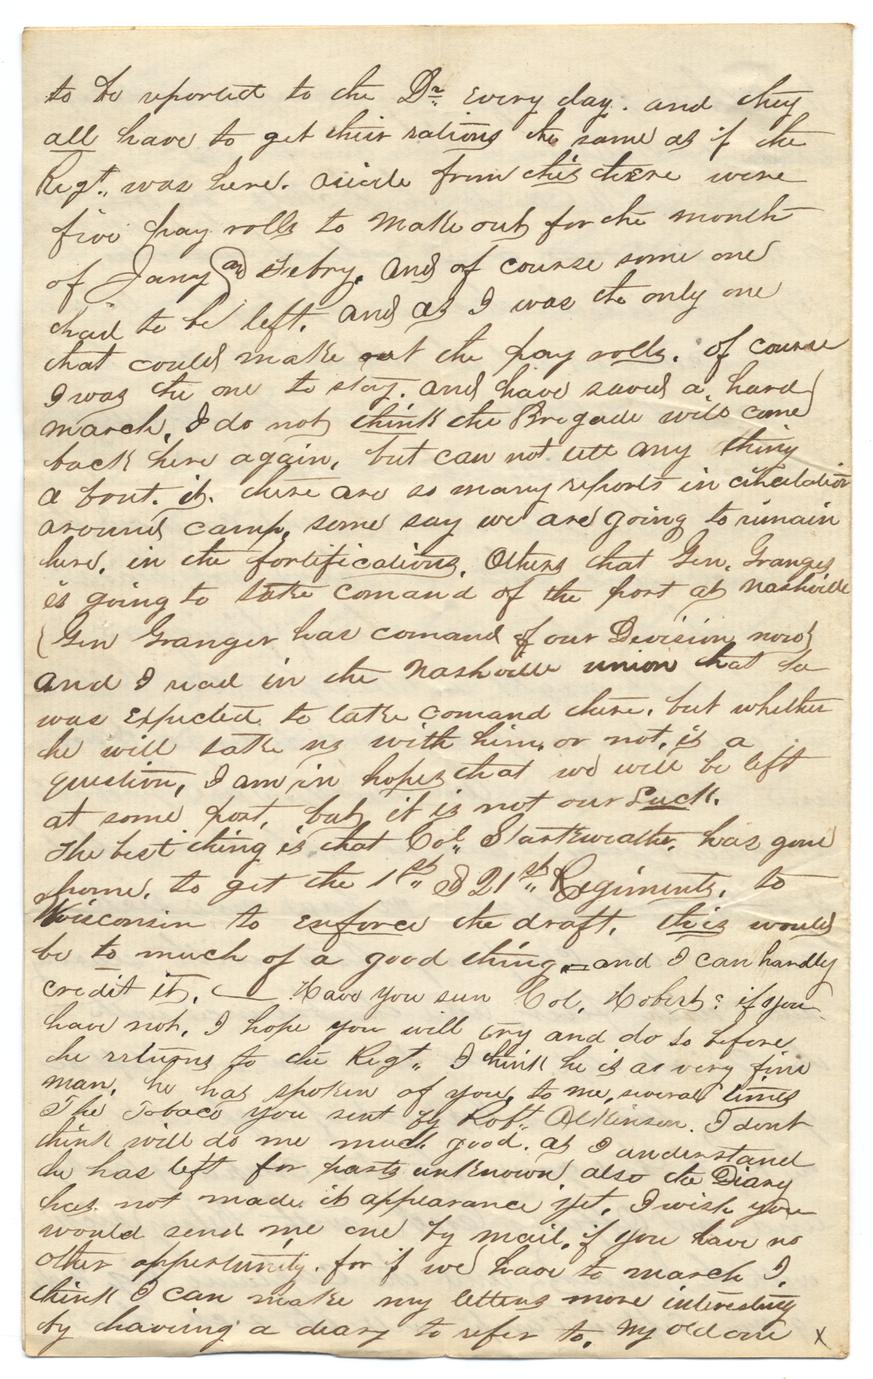 to be reported to the Dr. every day. and they
all have to get their rations the same as if the
Regt. was here. aside from this there were
five pay rolls to make out for the month
of Jany and Febry. and of course some one
had to be left. and as I was the only one
that could make out the pay rolls. of course
I was the one to stay. and have saved a hard
march, I do not think the Brigade will come
back here again, but can not tell any thing
a bout. it. there are so many reports in circulation
around camp, some say we are going to remain
here, in the fortifications. Others that Gen. Granger
is going to take comand of the port at Nashville
(Gen Granger has comand of our Division now)
and I read in the Nashville union that he
was expected to take comand there. but whether
he will take us with him, or not, is a
question, I am in hopes that we will be left
at some port, but it is not our Luck.
The best thing is that Col. Starkweather, has gone
home, to get the 1st & 21st Regiments, to
Wisconsin to enforce the draft, this would
be to much of a good thing, and I can hardly
credit it. — Have you seen Col. Hobert? if you
have not, I hope you will try and do so before
he returns to the Regt. I think he is as very fine
man, he has spoken of you, to me, several times
The Tobaco you sent by Robt. Atkinson. I dont
think will do me much good. as I understand
he has left for parts unknown also the Diary
has not made it appearance yet. I wish you
would send me one by mail, if you have no
other oppertunity. for if we have to march I,
think I can make my letters more interesting
by having a diary to refer to. My old one x